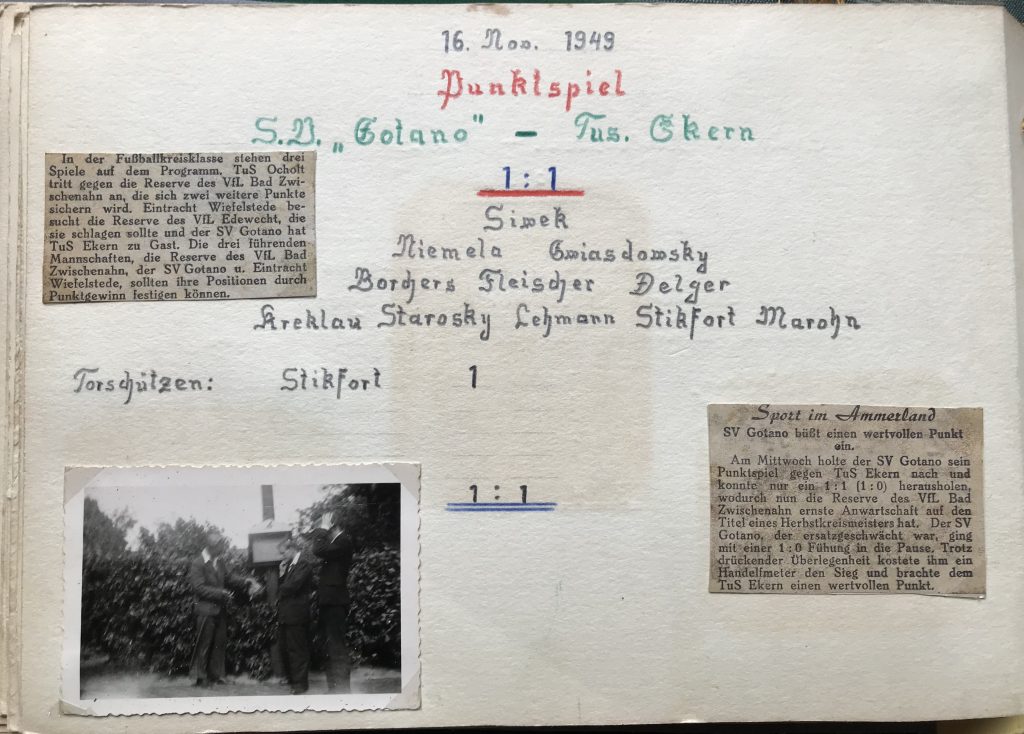 16. Nov. 1949
Punktspiel
S.V. „Gotano" – Tus. Ekern
In der Fußballkreisklasse stehen drei
Spiele auf dem Programm. TuS Ocholt
tritt gegen die Reserve des VfL Bad Zwi-
schenahn an, die sich zwei weitere Punkte
sichern wird. Eintracht Wiefelstede be-
sucht die Reserve des VfL Edewecht, die
sie schlagen sollte und der SV Gotano hat
TuS Ekern zu Gast. Die drei führenden
Mannschaften, die Reserve des VfL Bad
Zwischenahn, der SV Gotano u. Eintracht
Wiefelstede, sollten ihre Positionen durch
Punktgewinn festigen können.
1 : 1
Siwek
Niemela Gwiasdowsky
Borchers Fleischer Delger
Kreklau Starosky Lehmann Stikfort Marohn
Torschützen: Stikfort 1
1 : 1
Sport im Ammerland
SV Gotano büßt einen wertvollen Punkt
ein.
Am Mittwoch holte der SV Gotano sein
Punktspiel gegen TuS Ekern nach und
konnte nur ein 1 : 1 (1 : 0) herausholen,
wodurch nun die Reserve des VfL Bad
Zwischenahn ernste Anwartschaft auf den
Titel eines Herbstkreismeisters hat. Der SV
Gotano, der ersatzgeschwächt war, ging
mit einer 1 : 0 Fühung in die Pause. Trotz
drückender Überlegenheit kostete ihm ein
Handelfmeter den Sieg und brachte dem
TuS Ekern einen wertvollen Punkt.